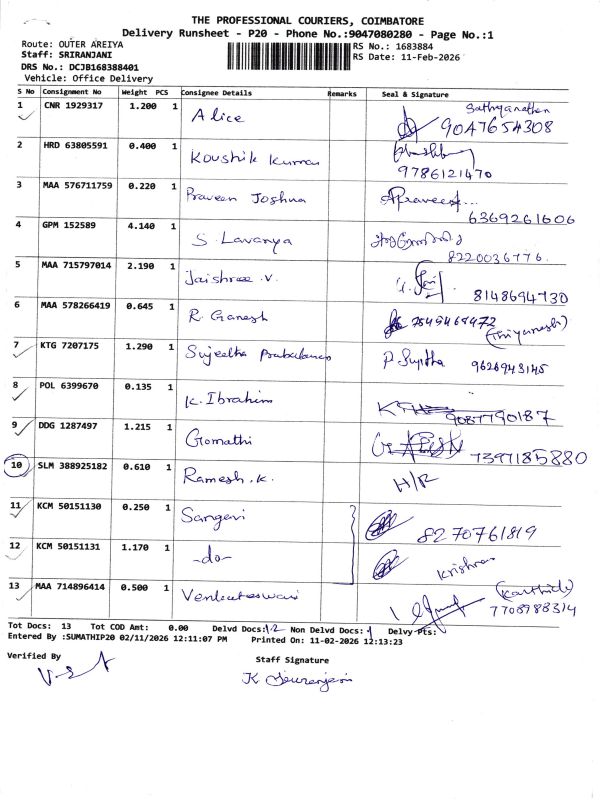 THE PROFESSIONAL COURIERS, COIMBATORE
Delivery Runsheet - P20 - Phone No.:9047080280 - Page No.:1
Route: OUTER AREIYA
RS No.: 1683884
Staff: SRIRANJANI
RS Date: 11-Feb-2026
DRS No.: DCJB168388401
Vehicle: Office Delivery
S No Consignment No Weight PCS Consignee Details Remarks Seal & Signature
1 CNR 1929317 1.200 1 Alice Sathyanathan
9047654308
2 HRD 63805591 0.400 1 Koushik Kumar
9786121470
3 MAA 576711759 0.220 1 Praveen Joshua Praveen...
6369261606
4 GPM 152589 4.140 1 S Lavanya
8220036776.
5 MAA 715797014 2.190 1 Jaishree .V.
8148694730
6 MAA 578266419 0.645 1 R. Ganesh 7549469472
7 KTG 7207175 1.290 1 Sujeetha P. Sujitha 9626943145
8 POL 6399670 0.135 1 K. Ibrahim
9087790187
9 DDG 1287497 1.215 1 Gomathi
7397185880
10 SLM 388925182 0.610 1 Ramesh .K. H/R
11 KCM 50151130 0.250 1 Sangevi 8270761819
12 KCM 50151131 1.170 1 -do- Krishna
13 MAA 714896414 0.500 1 Venkateswari (Karthick)
7708988314
Tot Docs: 13 Tot COD Amt: 0.00 Delvd Docs:12 Non Delvd Docs:1 Delvy Pts:
Entered By :SUMATHIP20 02/11/2026 12:11:07 PM Printed On: 11-02-2026 12:13:23
Verified By
Staff Signature